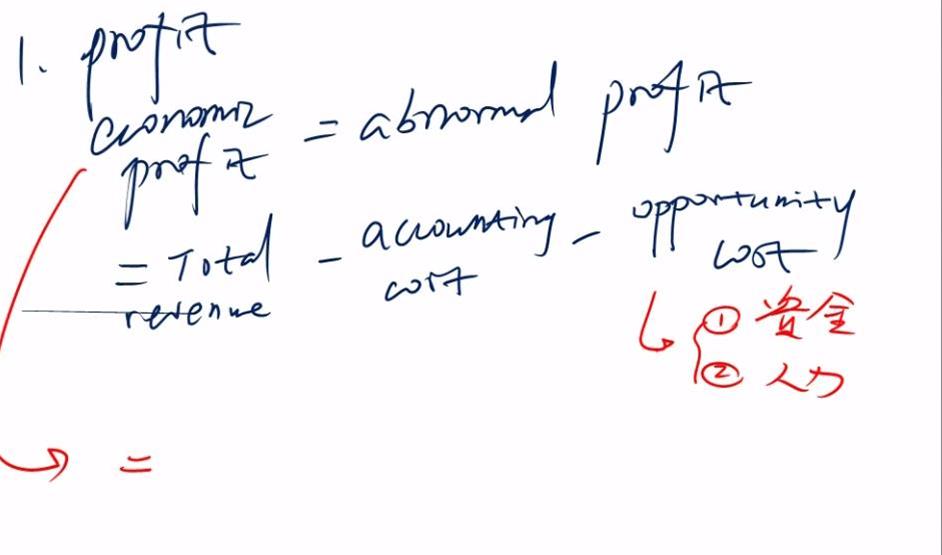 1. profit
economic profit = abnormal profit
= Total revenue - accounting cost - opportunity cost
① 资金
② 人力
=